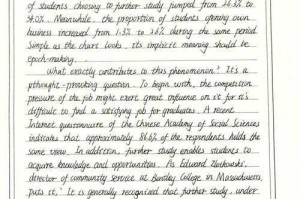 of students choosing to further study jumped from 26.3% to
34.0%. Meanwhile, the proportion of students opening own
business increased from 1.3% to 2.6% during the same period.
Simple as the chart looks, its implicit meaning should be
epoch-making.
What exactly contributes to this phenomenon? It's a
thought-provoking question. To begin with, the competition
pressure of the job might exert great influence on it for it's
difficult to find a satisfying job for graduates. A recent
Internet questionnaire of the Chinese Academy of Social Sciences
indicates that approximately 86.6% of the respondents holds the
same view. In addition, further study enables students to
acquire knowledge and opportunities. As Edward
director of community service at Bentley College in Massachusetts,
puts it, "It is generally recognized that further study, under